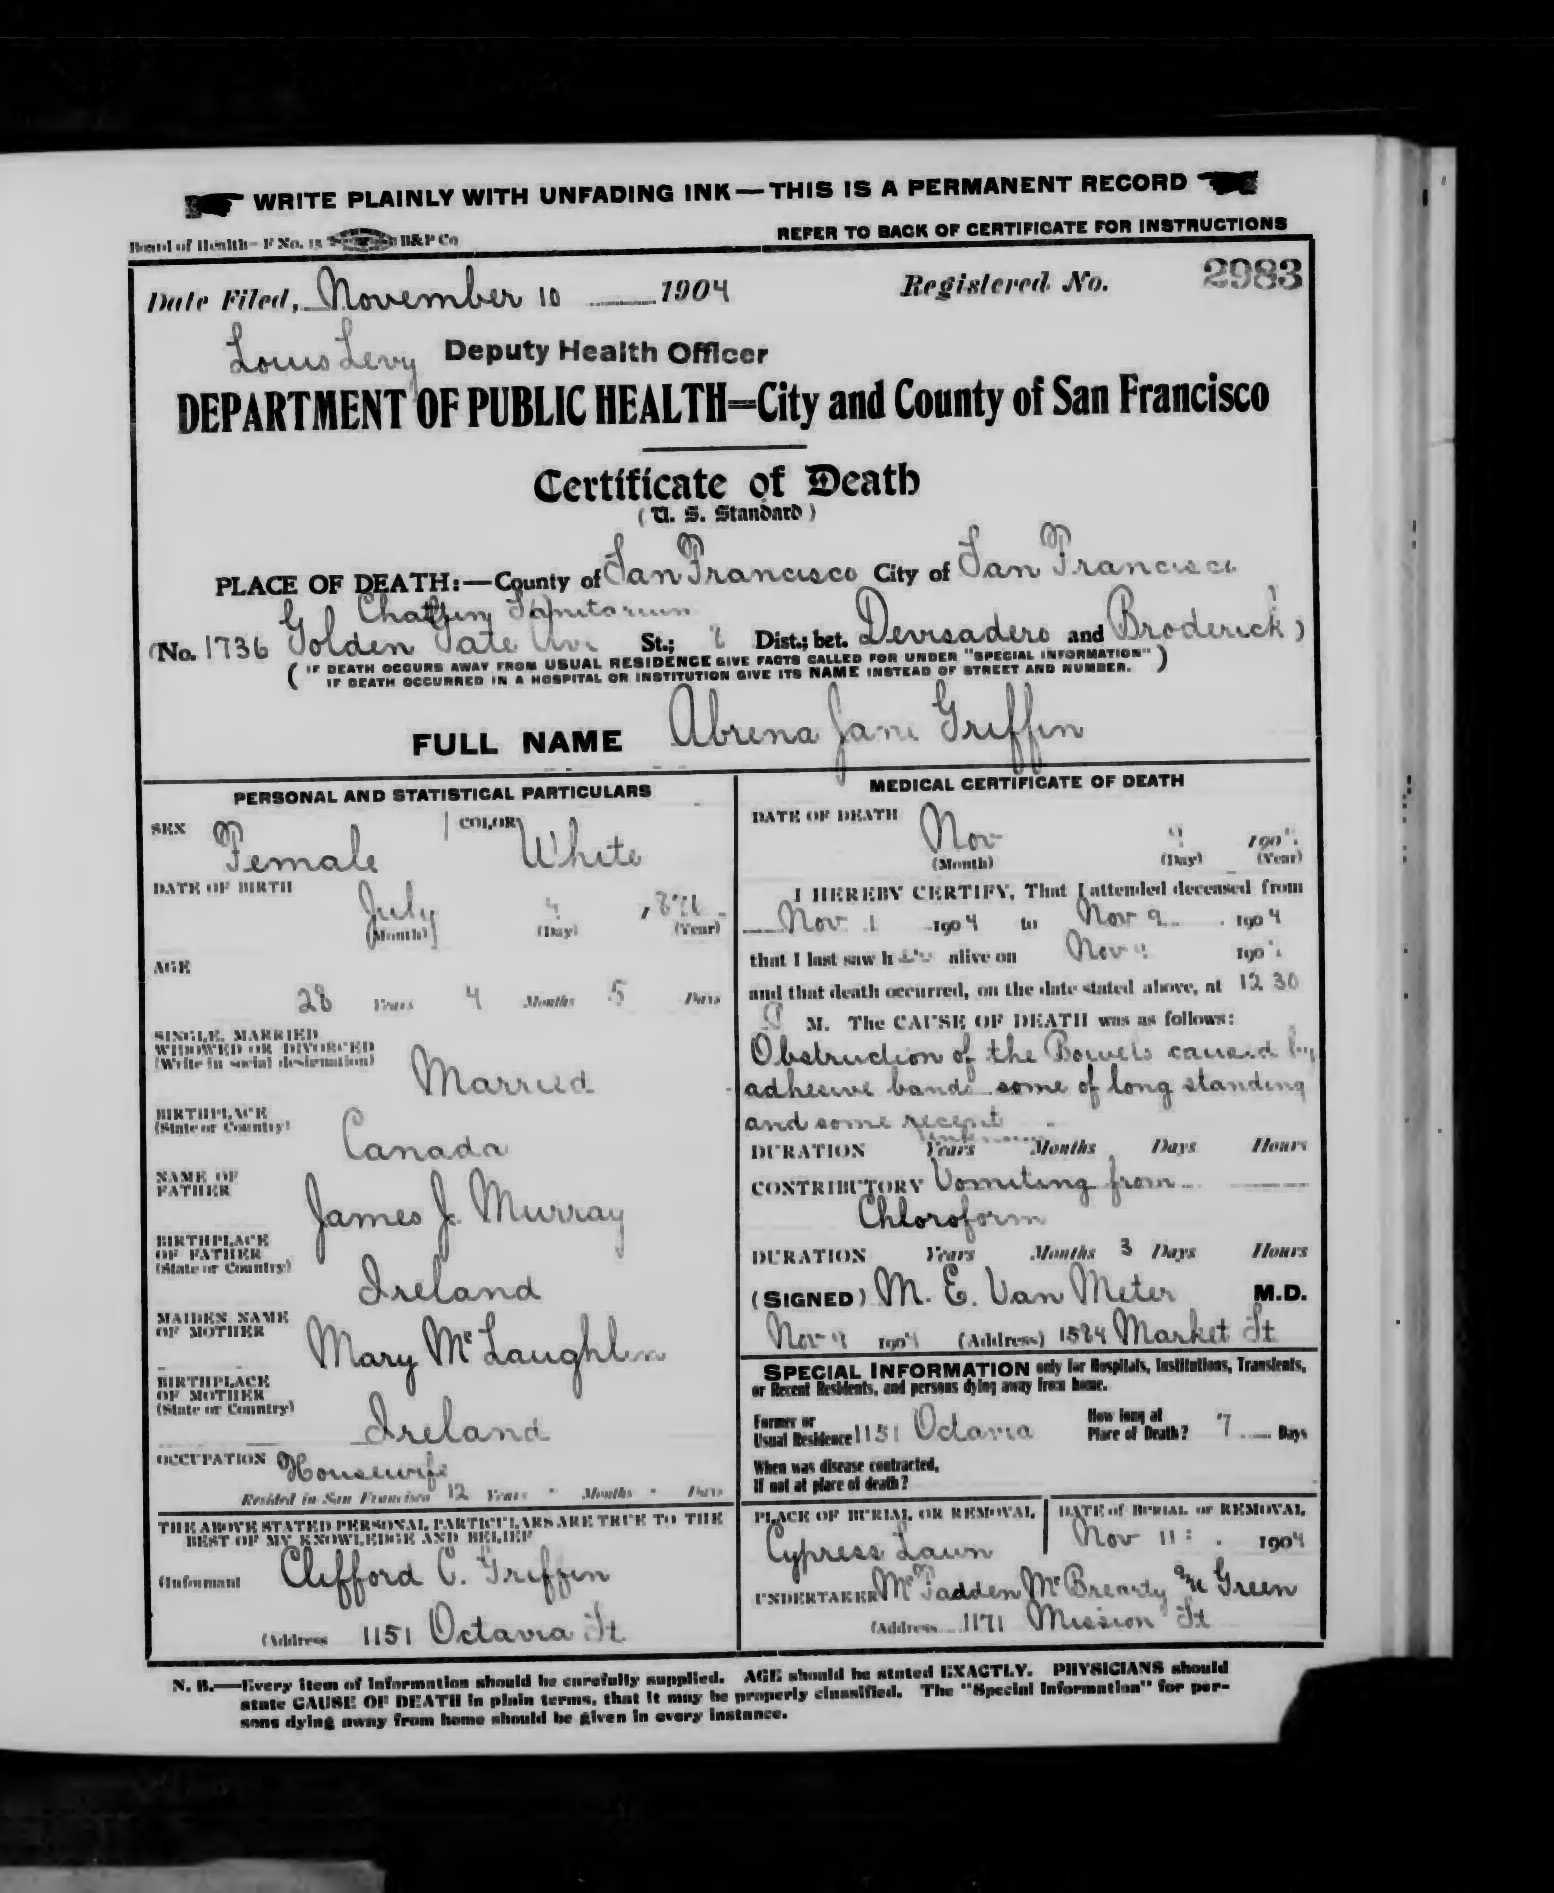 WRITE PLAINLY WITH UNFADING INK—THIS IS A PERMANENT RECORD
Board of Health—F No. 15 B&P Co
REFER TO BACK OF CERTIFICATE FOR INSTRUCTIONS
Date Filed, November 10 1904 Registered No. 2983
Louis Levy Deputy Health Officer
DEPARTMENT OF PUBLIC HEALTH=City and County of San Francisco
Certificate of Death
(U. S. Standard)
PLACE OF DEATH:—County of San Francisco City of San Francisco
Sanitarium
(No. 1736 Golden Gate Ave St.; Dist.; bet. Devisadero and Broderick)
(IF DEATH OCCURS AWAY FROM USUAL RESIDENCE GIVE FACTS CALLED FOR UNDER "SPECIAL INFORMATION"
IF DEATH OCCURRED IN A HOSPITAL OR INSTITUTION GIVE ITS NAME INSTEAD OF STREET AND NUMBER.)
FULL NAME Abrena Jane Griffin
PERSONAL AND STATISTICAL PARTICULARS
SEX Female COLOR White
DATE OF BIRTH July 4 1876
(Month) (Day) (Year)
AGE
28 Years 4 Months 5 Days
SINGLE, MARRIED
WIDOWED OR DIVORCED
(Write in social designation) Married
BIRTHPLACE
(State or Country) Canada
NAME OF
FATHER James J. Murray
BIRTHPLACE
OF FATHER
(State or Country) Ireland
MAIDEN NAME
OF MOTHER Mary McLaughlin
BIRTHPLACE
OF MOTHER
(State or Country) Ireland
OCCUPATION Housewife
Resided in San Francisco 12 Years - Months - Days
THE ABOVE STATED PERSONAL PARTICULARS ARE TRUE TO THE
BEST OF MY KNOWLEDGE AND BELIEF
(Informant Clifford C. Griffin
(Address 1151 Octavia St
MEDICAL CERTIFICATE OF DEATH
DATE OF DEATH Nov 9 1904
(Month) (Day) (Year)
I HEREBY CERTIFY, That I attended deceased from
Nov 1 1904 to Nov 9 1904
that I last saw her alive on Nov 9 1904
and that death occurred, on the date stated above, at 12 30
P M. The CAUSE OF DEATH was as follows:
Obstruction of the Bowels caused by
adhesive bands some of long standing
and some recent
unknown
DURATION Years Months Days Hours
CONTRIBUTORY Vomiting from
Chloroform
DURATION Years Months 3 Days Hours
(SIGNED) M. E. Van Meter M.D.
Nov 9 1904 (Address) 1584 Market St
SPECIAL INFORMATION only for Hospitals, Institutions, Transients,
or Recent Residents, and persons dying away from home.
Former or
Usual Residence 1151 Octavia How long at
Place of Death? 7 Days
When was disease contracted,
If not at place of death?
PLACE OF BURIAL OR REMOVAL DATE of BURIAL or REMOVAL
Cypress Lawn Nov 11 1904
UNDERTAKER McFadden McBrearty & Green
(Address 1171 Mission St
N. B.—Every item of information should be carefully supplied. AGE should be stated EXACTLY. PHYSICIANS should
state CAUSE OF DEATH in plain terms, that it may be properly classified. The "Special Information" for per-
sons dying away from home should be given in every instance.